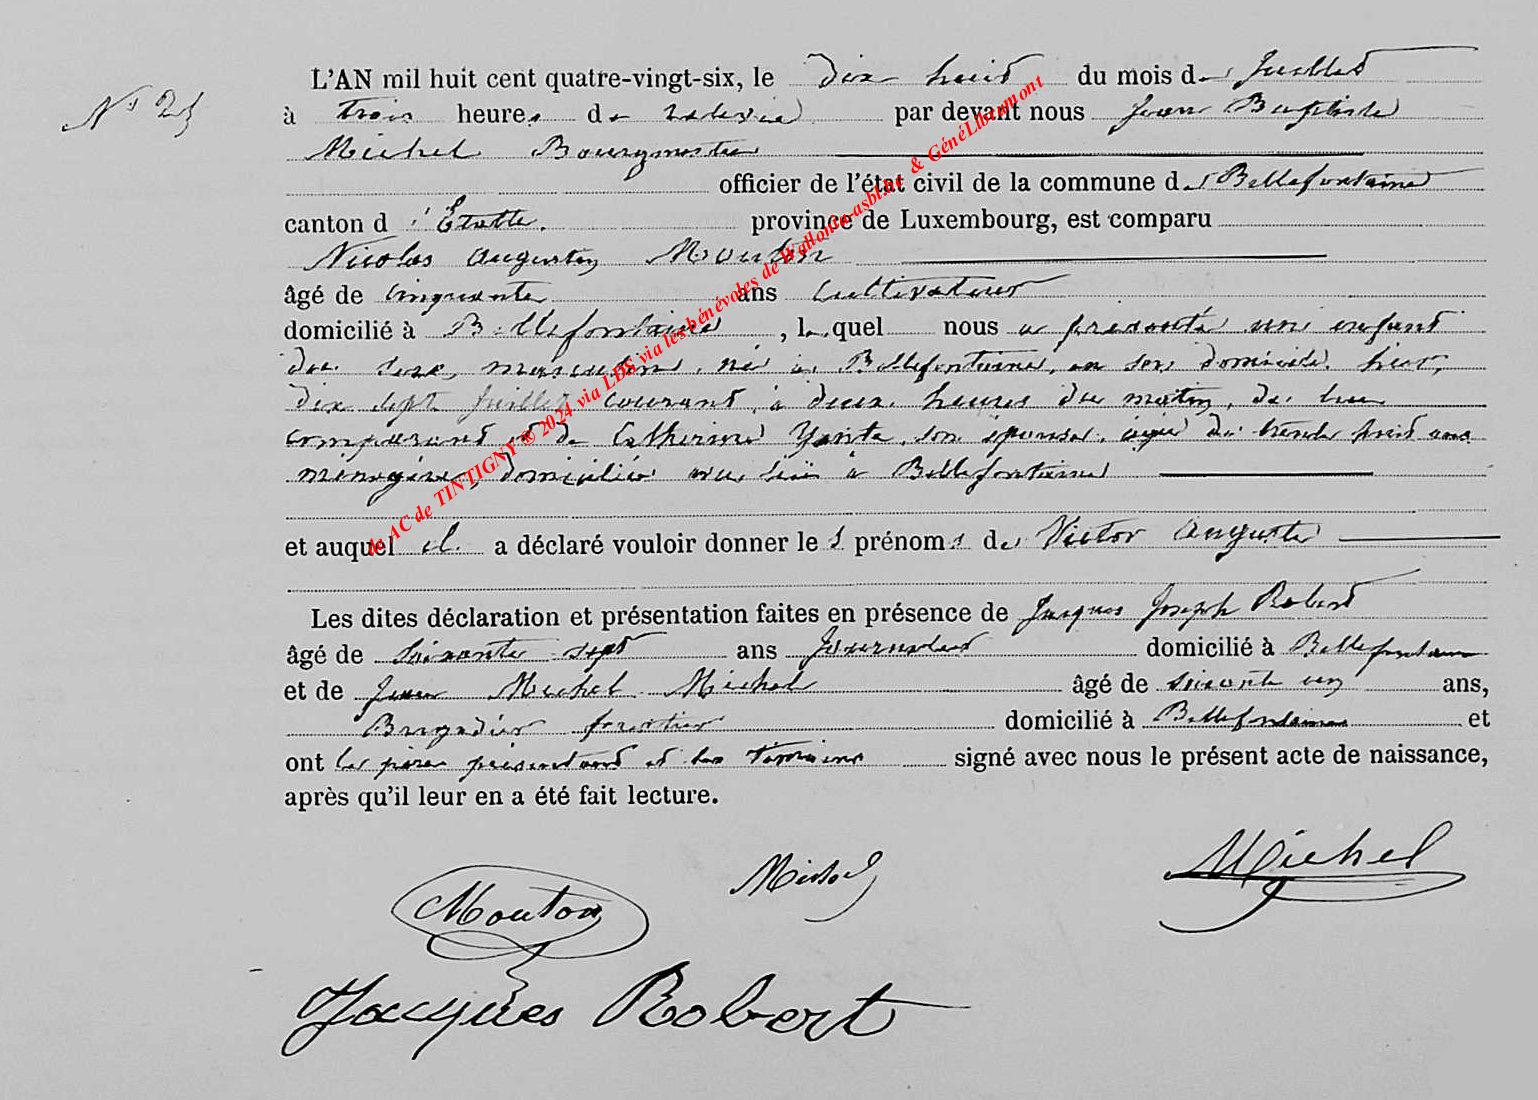 L'AN mil huit cent quatre-vingt-six, le dix huit du mois de Juillet
N° 25
à trois heures de relevée par devant nous Jean Baptiste
Michel Bourgmestre
officier de l'état civil de la commune de Bellefontaine
canton d'Etalle. province de Luxembourg, est comparu
Nicolas Augustin Mouton
âgé de cinquante ans Cultivateur
domicilié à Bellefontaine, lequel nous a présenté un enfant
du sexe masculin, né à Bellefontaine, en son domicile, hier,
dix sept Juillet courant, à deux heures du matin, de lui
comparant et de Catherine Yante, son épouse, âgée de trente huit ans
ménagère, domiciliée avec lui à Bellefontaine
et auquel il a déclaré vouloir donner les prénoms de Victor Auguste
Les dites déclaration et présentation faites en présence de Jacques Joseph Robert
âgé de soixante sept ans Journalier domicilié à Bellefontaine
et de Jean Michel Michel âgé de soixante un ans,
Brigadier forestier domicilié à Bellefontaine et
ont les père présentant et les témoins signé avec nous le présent acte de naissance,
après qu'il leur en a été fait lecture.
Michel
Michel
Mouton
Jacques Robert
de AC de TINTIGNY © 2024 via LDS via les bénévoles de Wallonia-asbl.be & GénéLibramont